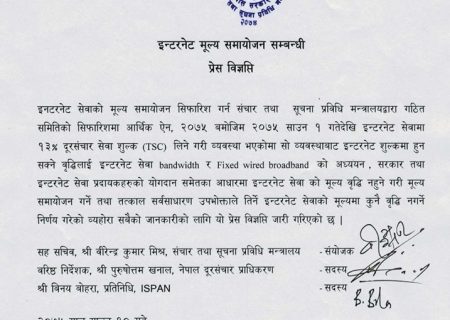 २०७४
इन्टरनेट मूल्य समायोजन सम्बन्धी
प्रेस विज्ञप्ति
इनटरनेट सेवाको मूल्य समायोजन सिफारिश गर्न संचार तथा सूचना प्रविधि मन्त्रालयद्वारा गठित
समितिको सिफारिशमा आर्थिक ऐन, २०७५ बमोजिम २०७५ साउन १ गतेदेखि इन्टरनेट सेवामा
१३% दूरसंचार सेवा शुल्क (TSC) लिने गरी व्यवस्था भएकोमा सो व्यवस्थाबाट इन्टरनेट शुल्कमा हुन
सक्ने वृद्धिलाई इन्टरनेट सेवा bandwidth र Fixed wired broadband को अध्ययन , सरकार तथा
इन्टरनेट सेवा प्रदायकहरुको योगदान समेतका आधारमा इन्टरनेट सेवा को मूल्य वृद्धि नहुने गरी मूल्य
समायोजन गर्ने तथा तत्काल सर्वसाधारण उपभोक्ताले तिर्ने इन्टरनेट सेवाको मूल्यमा कुनै वृद्धि नगर्ने
निर्णय गरेको व्यहोरा सबैको जानकारीको लागि यो प्रेस विज्ञप्ति जारी गरिएको छ |
सह सचिव, श्री बीरेन्द्र कुमार मिश्र, संचार तथा सूचना प्रविधि मन्त्रालय - संयोजक
वरिष्ठ निर्देशक, श्री पुरुषोत्तम खनाल, नेपाल दूरसंचार प्राधिकरण - सदस्य
श्री विनय बोहरा, प्रतिनिधि, ISPAN - सदस्य